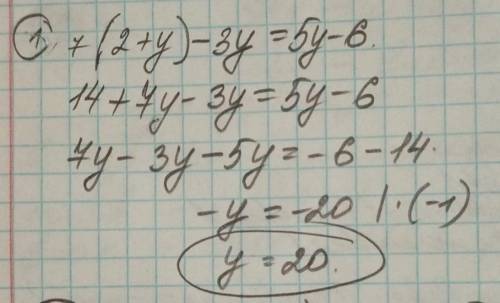 1. 7(2+y)-3y=5y-6.
14+7y-3y=5y-6
7y-3y-5y=-6-14.
-y=-20 |·(-1)
y=20.